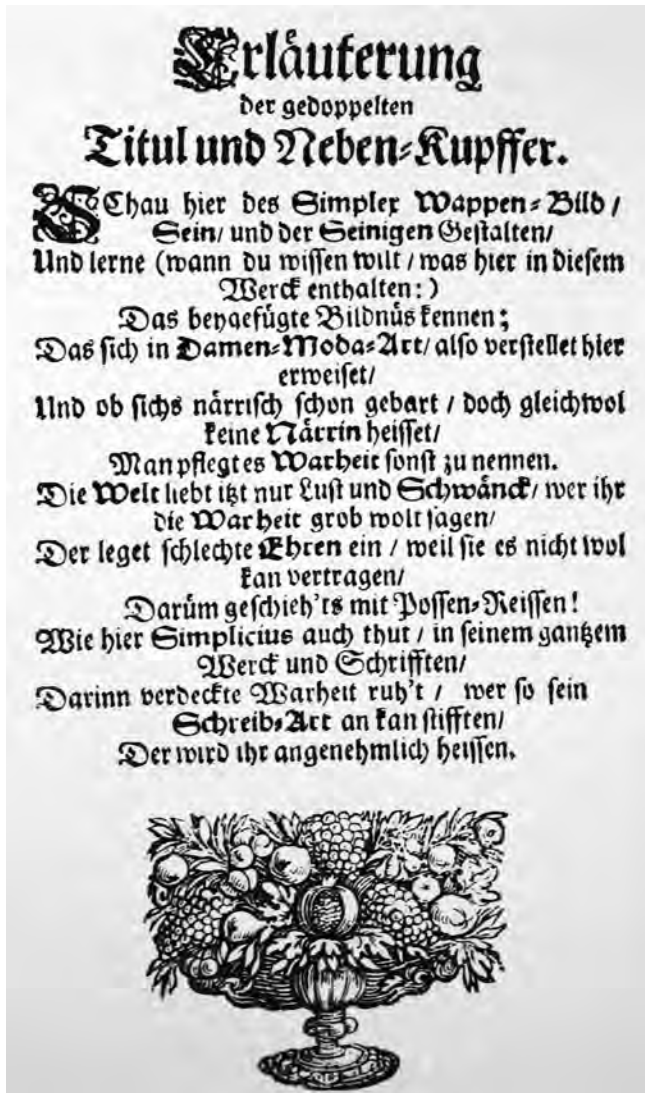 Erläuterung
der gedoppelten
Titul und Neben-Kupffer.
SChau hier des Simplex Wappen-Bild /
Sein / und der Seinigen Gestalten /
Und lerne (wann du wissen wilt / was hier in diesem
Werck enthalten:)
Das beygefügte Bildnüs kennen;
Das sich in Damen-Moda-Art / also verstellet hier
erweiset /
Und ob sichs närrisch schon gebart / doch gleichwol
keine Närrin heisset /
Man pflegt es Warheit sonst zu nennen.
Die Welt liebt itzt nur Lust und Schwänck / wer ihr
die Warheit grob wolt sagen /
Der leget schlechte Ehren ein / weil sie es nicht wol
kan vertragen /
Darüm geschieh'ts mit Possen-Reissen!
Wie hier Simplicius auch thut / in seinem gantzem
Werck und Schrifften /
Darinn verdeckte Warheit ruh't / wer so sein
Schreib-Art an kan stifften /
Der wird ihr angenehmlich heissen.